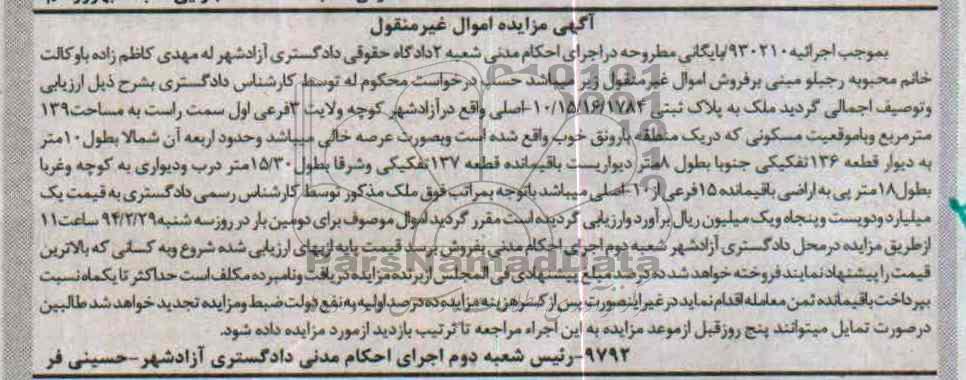 آگهی مزایده اموال غیرمنقول
بموجب اجرائیه ۹۳۰۲۱۰/بایگانی مطروحه در اجرای احکام مدنی شعبه ۲ دادگاه حقوقی دادگستری آزادشهر له مهدی کاظم زاده باوکالت
خانم محبوبه رجبلو مبنی برفروش اموال غیرمنقول زیر میباشد حسب درخواست محکوم له توسط کارشناس دادگستری بشرح ذیل ارزیابی
وتوصیف اجمالی گردید ملک به پلاک ثبتی ۱۰/۱۵/۱۶/۱۷۸۴-اصلی واقع درآزادشهر کوچه ولایت ۳فرعی اول سمت راست به مساحت۱۳۹
مترمربع وباموقعیت مسکونی که دریک منطقه بارونق خوب واقع شده است وبصورت عرصه خالی میباشد وحدود اربعه آن شمالا بطول۱۰متر
به دیوار قطعه ۱۳۶تفکیکی جنوبا بطول ۸متر دیواریست باقیمانده قطعه ۱۳۷تفکیکی وشرقا بطول ۱۵/۳۰متر درب ودیواری به کوچه وغربا
بطول۱۸متر پی به اراضی باقیمانده ۱۵فرعی از۱۰-اصلی میباشد باتوجه بمراتب فوق ملک مذکور توسط کارشناس رسمی دادگستری به قیمت یک
میلیارد ودویست وپنجاه ویک میلیون ریال برآورد وارزیابی گردیده است مقرر گردید اموال موصوف برای دومین بار در روزسه شنبه۹۴/۲/۲۹ ساعت۱۱
ازطریق مزایده درمحل دادگستری آزادشهر شعبه دوم اجرای احکام مدنی بفروش برسد قیمت پایه ازبهای ارزیابی شده شروع وبه کسانی که بالاترین
قیمت راپیشنهاد نمایند فروخته خواهد شد ده درصد مبلغ پیشنهادی فی المجلس ازبرنده مزایده دریافت ونامبرده مکلف است حداکثر تا یکماه نسبت
بپرداخت باقیمانده ثمن معامله اقدام نماید در غیراینصورت پس از کسر هزینه مزایده ده درصد اولیه به نفع دولت ضبط ومزایده تجدید خواهد شد طالبین
درصورت تمایل میتوانند پنج روزقبل ازموعد مزایده به این اجراء مراجعه تا ترتیب بازدید ازمورد مزایده داده شود.
۹۷۹۲-رئیس شعبه دوم اجرای احکام مدنی دادگستری آزادشهر-حسینی فر
ParsNamadData